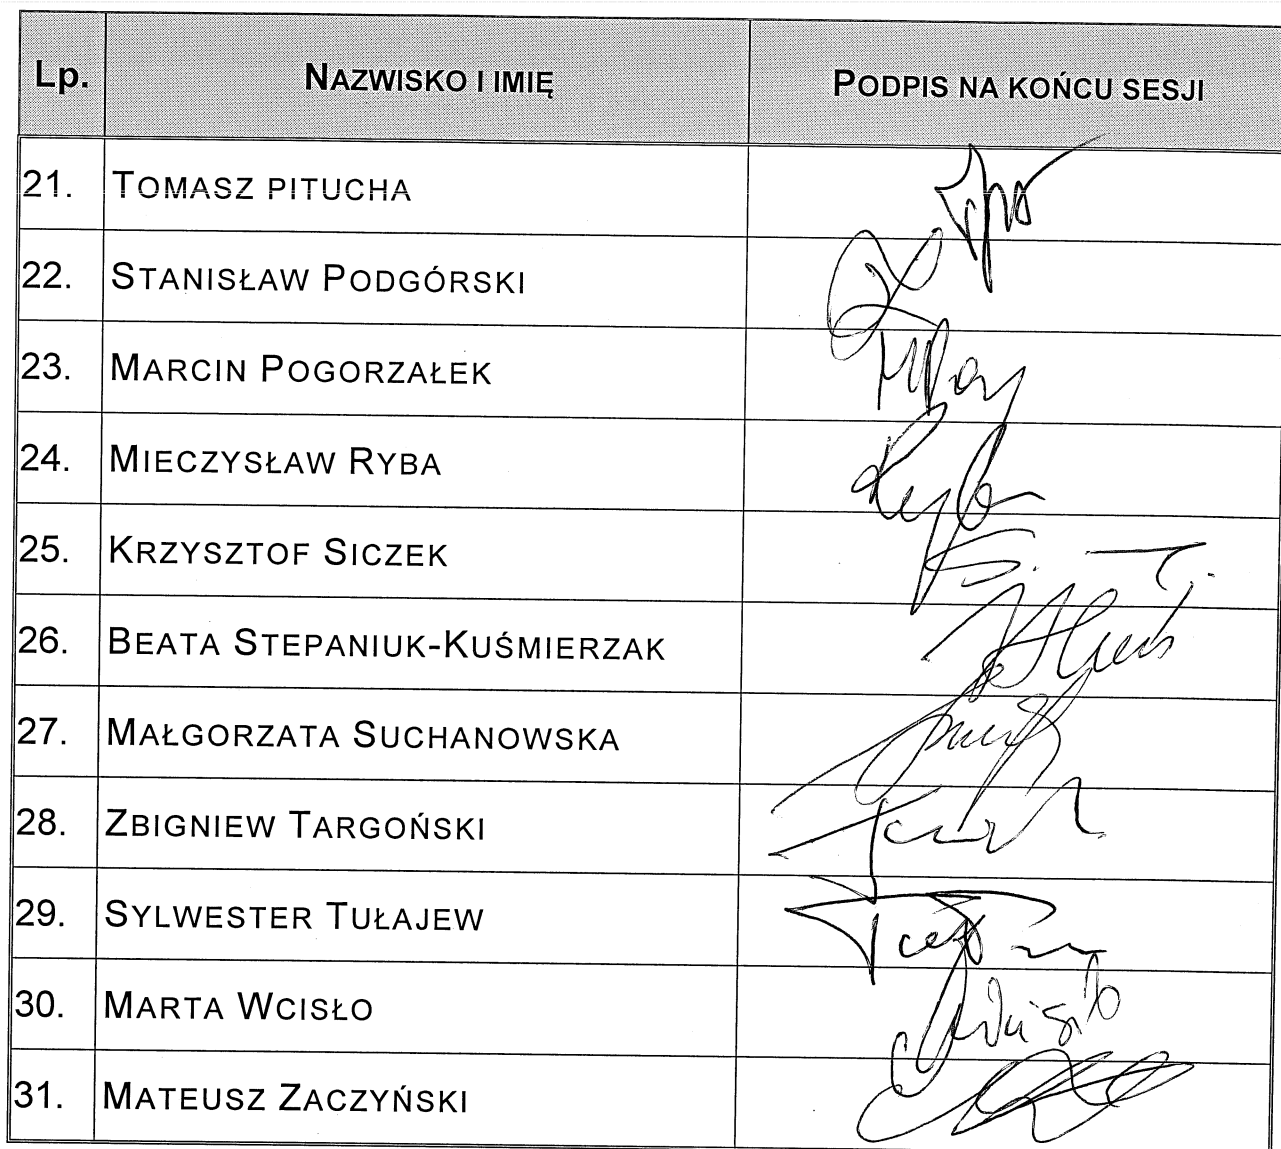 Lp. NAZWISKO I IMIĘ PODPIS NA KOŃCU SESJI
21. TOMASZ PITUCHA
22. STANISŁAW PODGÓRSKI
23. MARCIN POGORZAŁEK
24. MIECZYSŁAW RYBA
25. KRZYSZTOF SICZEK
26. BEATA STEPANIUK-KUŚMIERZAK
27. MAŁGORZATA SUCHANOWSKA
28. ZBIGNIEW TARGOŃSKI
29. SYLWESTER TUŁAJEW
30. MARTA WCISŁO
31. MATEUSZ ZACZYŃSKI